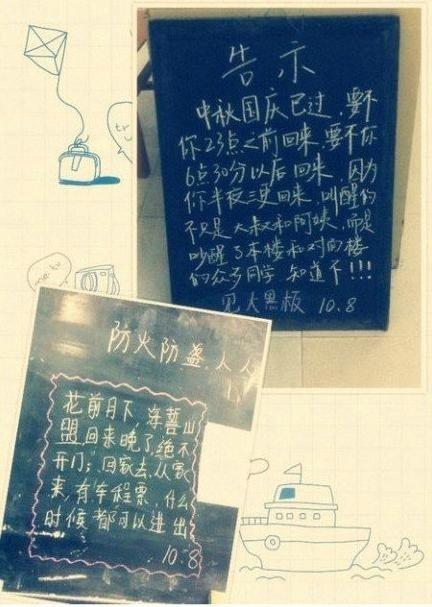 告示
中秋国庆已过,要不
你23点之前回来,要不你
6点30分以后回来,因为
你半夜三更回来,叫醒的
不只是大叔和阿姨,而是
吵醒了本楼和对面楼
的众多同学 知道不!!!
见大黑板 10.8
防火防盗,人人
花前月下,海誓山
盟,回来晚了,绝不
开门;回家去,从家
来,有车程票,什么
时候都可以进出
10.8